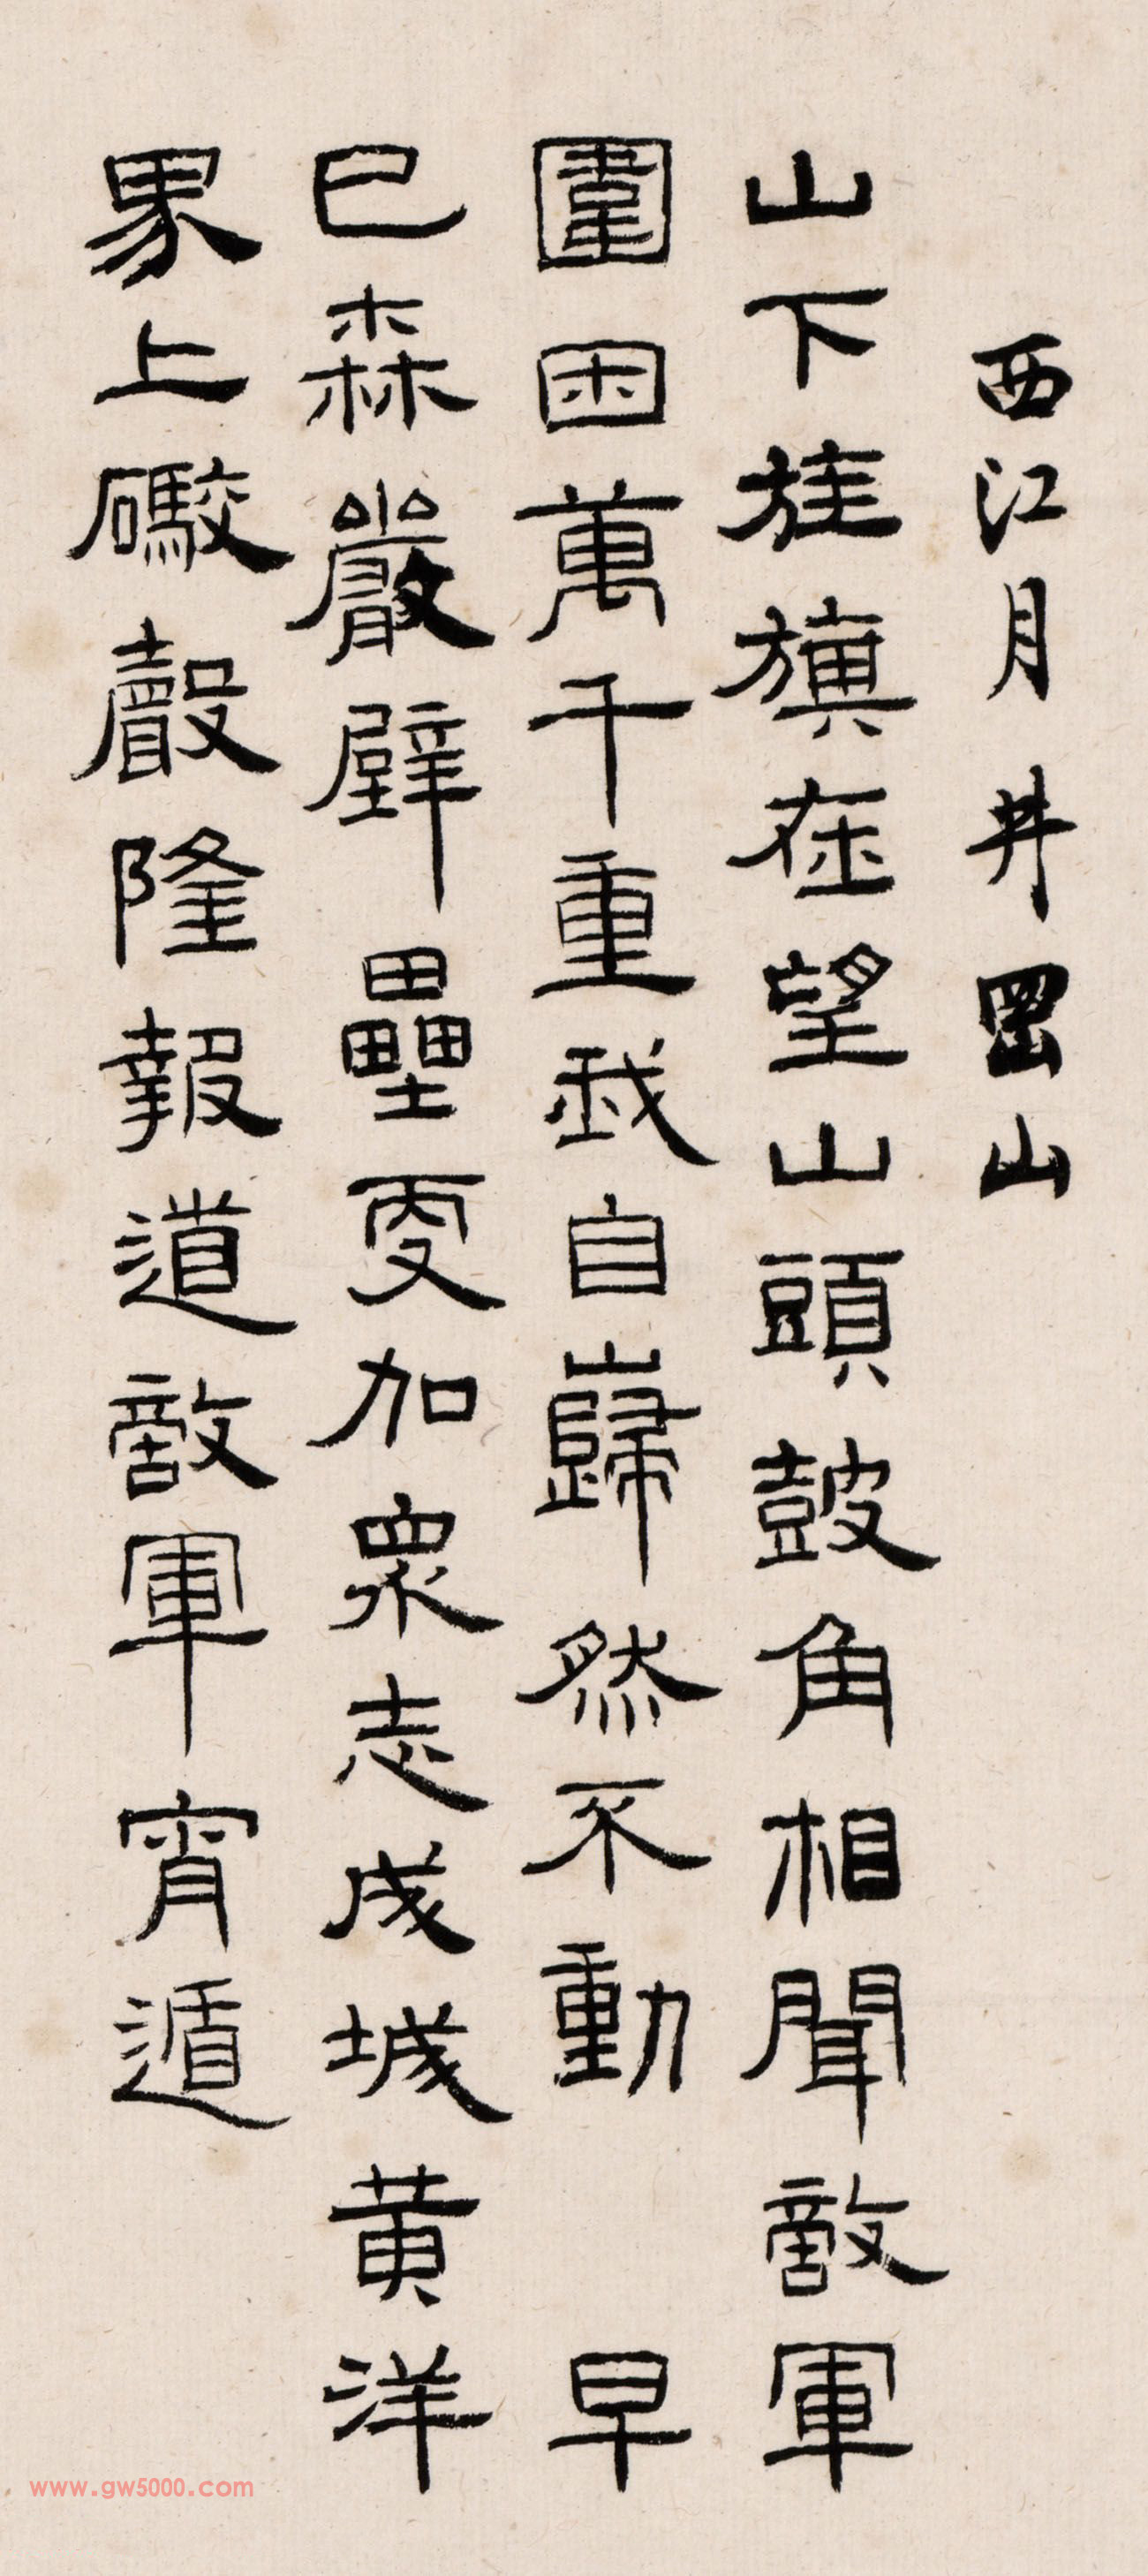 西江月 井岡山
山下旌旗在望山頭鼓角相聞敵軍
圍困萬千重我自巋然不動 早
已森嚴壁壘更加眾志成城黃洋
界上礮聲隆報道敵軍宵遁
www.gw5000.com